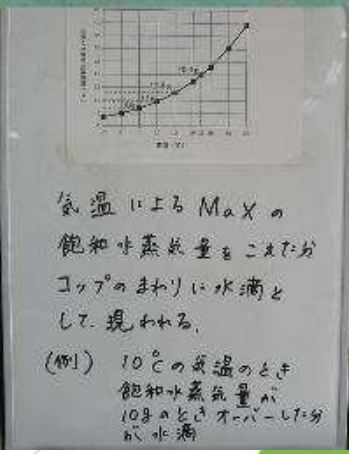 気温によるMaxの
飽和水蒸気量をこえた分
コップのまわりに水滴と
して現われる。
(例) 10℃の気温のとき
飽和水蒸気量が
10gのときオーバーした分
が水滴